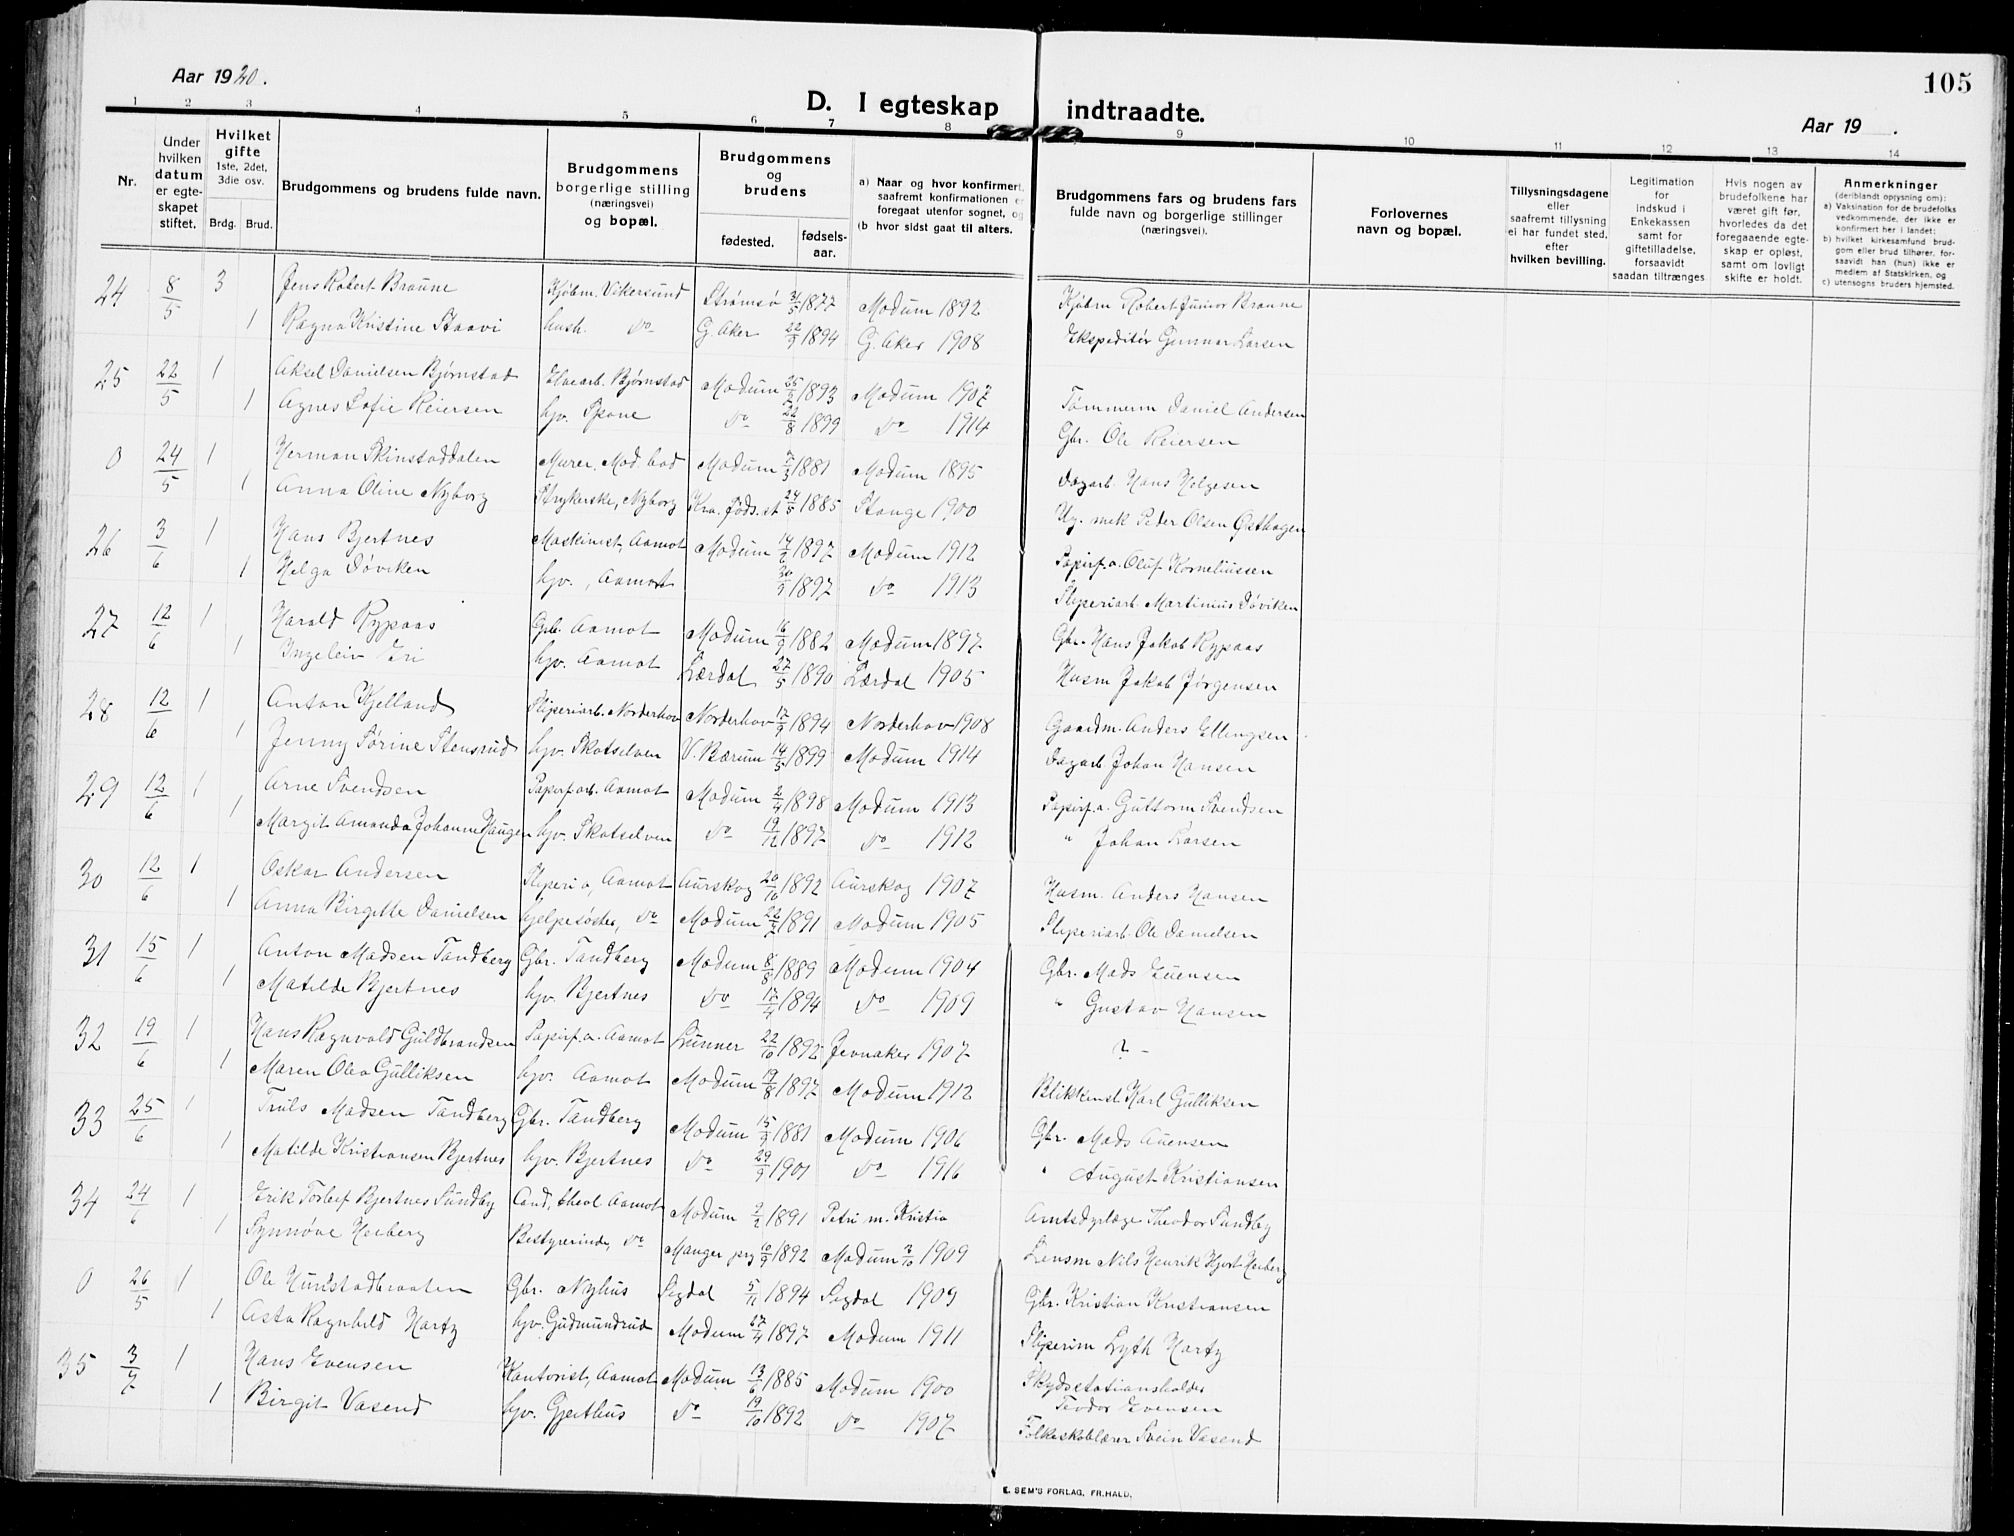 Aar 1920.
D. I egteskap indtraadte.
Aar 19 .
105
1 2 3 4 5 6 7 8 9 10 11 12 13 14
Nr.
Under hvilken datum er egteskapet stiftet.
Hvilket gifte 1ste, 2det, 3die osv.
Brdg. Brud.
Brudgommens og brudens fulde navn.
Brudgommens borgerlige stilling (næringsvei) og bopæl.
Brudgommens og brudens
fødested. fødsels-aar.
a) Naar og hvor konfirmert, saafremt konfirmationen er foregaat utenfor sognet, og
(b hvor sidst gaat til alters.
Brudgommens fars og brudens fars fulde navn og borgerlige stillinger (næringsvei).
Forlovernes navn og bopæl.
Tillysningsdagene eller saafremt tillysning ei har fundet sted, efter hvilken bevilling.
Legitimation for indskud i Enkekassen samt for giftetilladelse, forsaavidt saadan tiltrænges
Hvis nogen av brudefolkene har været gift før, hvorledes da det foregaaende egteskap er opløst, samt om lovligt skifte er holdt.
Anmerkninger
(deriblandt opysning om):
a) Vaksination for de brudefolks vedkommende, der ikke er konfirmert her i landet:
b) hvilket kirkesamfund brudgom eller brud tilhører, forsaavidt han (hun) ikke er medlem af Statskirken, og
c) utensogns bruders hjemsted.
24 8/5 3 Jens Robert Braune Kjøbm. Vikersund Strømsø 31/5 1877 Modum 1892 Kjøbm Robert Junior Braune
1 Ragna Kristine Staavi hush. do G. Aker 22/9 1894 G. Aker 1908 Ekspeditør Gunnar Larsen
25 22/5 1 Aksel Danielsen Bjørnstad Bjørnstad Modum 25/2 1893 Modum 1907 Tømmerm Daniel Andersen
1 Agnes Sofie Reiersen hjv. Spone do 22/8 1899 do 1914 Gbr. Ole Reiersen
0 24/5 1 Herman Skinstaddalen Murer, Mod. bad Modum 7/3 1881 Modum 1895 Dagarb. Hans Helgesen
1 Anna Oline Nyborg Strykerske, Nyborg Kra. føds.st 24/5 1885 Stange 1900 Peder Olsen Østhagen
26 3/6 1 Hans Bjertnes Maskinist, Aamot Modum 14/6 1897 Modum 1912 Papirf.a. Oluf Korneliussen
1 Helga Døviken hjv., Aamot 20/9 1897 do 1913 Sliperiarb. Martinius Døviken
27 12/6 1 Harald Rypaas Grb. Aamot Modum 16/9 1882 Modum 1897 Gbr. Hans Jakob Rypaas
1 Ingeleiv Eri hjv. Aamot Lærdal 27/5 1890 Lærdal 1905 Husm Jakob Jørgensen
28 12/6 1 Anton Kjelland Sliperiarb. Norderhov Norderhov 17/9 1894 Norderhov 1908 Gaardm. Anders Ellingsen
1 Jenny Sørine Stensrud hjv. Skotselven V. Bærum 14/5 1899 Modum 1914 Dagarb Johan Hansen
29 12/6 1 Arne Svendsen Papirf.arb. Aamot Modum 2/4 1898 Modum 1913 Papirf.a. Guttorm Svendsen
1 Margit Amanda Johanne Haugen hjv. Skotselven do 19/12 1897 do 1912 " Johan Larsen
30 12/6 1 Oskar Andersen Sliperi a, Aamot Aurskog 20/10 1892 Aurskog 1907 Husm. Anders Hansen
1 Anna Birgitte Danielsen hjelpesøster, do Modum 22/2 1891 Modum 1905 Sliperiarb. Ole Danielsen
31 15/6 1 Anton Madsen Tandberg Gbr. Tandberg Modum 8/8 1889 Modum 1904 Gbr. Mads Evensen
1 Matilde Bjertnes hjv. Bjertnes do 17/4 1894 do 1909 " Gustav Hansen
32 19/6 1 Hans Ragnvald Guldbrandsen Papirf.a. Aamot Lunner 22/10 1892 Jevnaker 1907 ? -
1 Maren Olea Gulliksen hjv. Aamot Modum 19/8 1897 Modum 1912 Blikkensl Karl Gulliksen
33 25/6 1 Truls Madsen Tandberg Gbr. Tandberg Modum 15/9 1881 Modum 1906 Gbr. Mads Evensen
1 Matilde Kristiansen Bjertnes hjv. Bjertnes do 29/9 1901 do 1916 " August Kristiansen
34 24/6 1 Erik Torleif Bjertnes Sundby Cand. theol Aamot Modum 2/2 1891 Petri m. Kristia Amtsdyrlæge Theodor Sundby
1 Synnøve Heiberg Bestyrerinde, do Manger prg 10/9 1892 Modum 3/10 1909 Lensm Nils Henrik Hjort Heiberg
0 26/5 1 Ole Hunstadbraaten Gbr. Nyhus Sigdal 5/11 1894 Sigdal 1909 Gbr. Kristian Kristiansen
1 Asta Ragnhild Hartz hjv. Gudmundrud Modum 27/4 1897 Modum 1911 Sliperim Lyth Hartz
35 3/7 1 Hans Evensen Kontorist, Aamot Modum 13/6 1885 Modum 1900 Skydsstationsholder Teodor Evensen
1 Birgit Vasend hjv. Gjerthus do 19/10 1892 do 1907 Folkeskolelærer Svein Vasend
E. SEM'S FORLAG, FR.HALD.